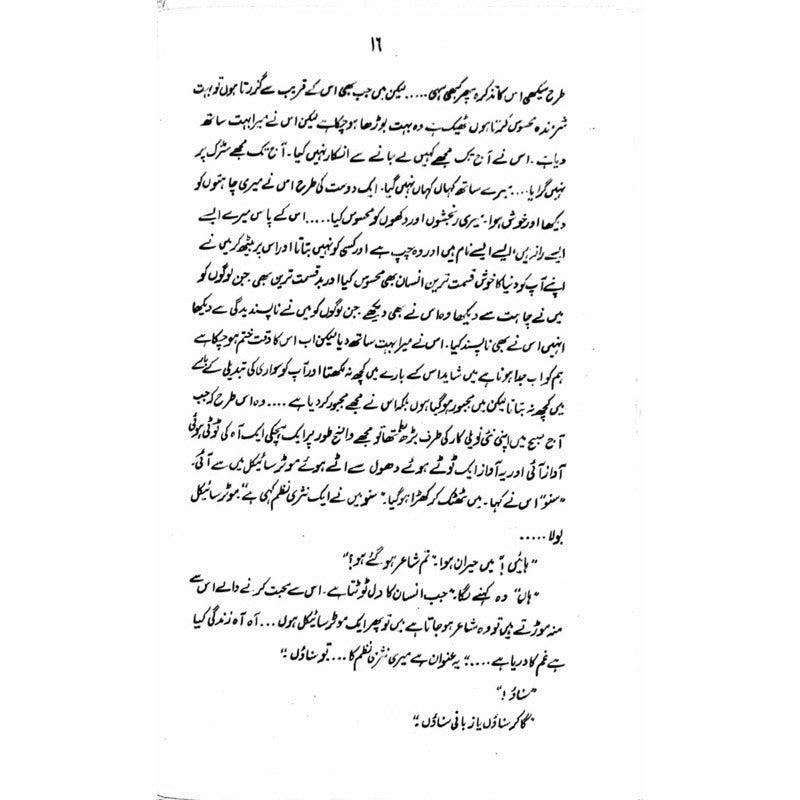 ۱۶
طرح سیکھی اس کا تذکرہ پھر کبھی سہی..... لیکن میں جب بھی اس کے قریب سے گزرتا ہوں تو بہت
شرمندہ محسوس کرتا ہوں ٹھیک ہے وہ بہت بوڑھا ہو چکا ہے لیکن اس نے میرا بہت ساتھ
دیا ہے۔ اس نے آج تک مجھے کہیں لے جانے سے انکار نہیں کیا۔ آج تک مجھے سڑک پر
نہیں گرایا.... میرے ساتھ کہاں کہاں نہیں گیا۔ ایک دوست کی طرح اس نے میری چاہتوں کو
دیکھا اور خوش ہوا۔ میری رنجشوں اور دکھوں کو محسوس کیا..... اس کے پاس میرے ایسے
ایسے راز ہیں، ایسے ایسے نام ہیں اور وہ چپ ہے اور کسی کو نہیں بتاتا اور اس پر بیٹھ کر میں نے
اپنے آپ کو دنیا کا خوش قسمت ترین انسان بھی محسوس کیا اور بدقسمت ترین بھی۔ جن لوگوں کو
میں نے چاہت سے دیکھا وہ اس نے بھی دیکھے جن لوگوں کو میں نے ناپسندیدگی سے دیکھا
انہیں اس نے بھی ناپسند کیا۔ اس نے میرا بہت ساتھ دیا لیکن اب اس کا وقت ختم ہو چکا ہے
ہم کو اب جدا ہونا ہے میں شاید اس کے بارے میں کچھ نہ لکھتا اور آپ کو سواری کی تبدیلی کے بارے
میں کچھ نہ بتاتا لیکن میں مجبور ہو گیا ہوں بلکہ اس نے مجھے مجبور کر دیا ہے.... وہ اس طرح کہ جب
آج صبح میں اپنی نئی نویلی کار کی طرف بڑھا تھا تو مجھے واضح طور پر ایک ہچکی ایک آہ کی ٹوٹی ہوئی
آواز آئی اور یہ آواز ایک ٹوٹے ہوئے دھول سے اٹے ہوئے موٹر سائیکل میں سے آئی۔
"سنو" اس نے کہا۔ میں ٹھٹھک کر کھڑا ہو گیا۔ "سنو میں نے ایک نثری نظم کہی ہے" موٹر سائیکل
بولا.....
"ہائیں!" میں حیران ہوا۔ "تم شاعر ہو گئے ہو؟"
"ہاں" وہ کہنے لگا۔ "جب انسان کا دل ٹوٹتا ہے۔ اس سے محبت کرنے والے اس سے
منہ موڑتے ہیں تو وہ شاعر ہو جاتا ہے میں تو پھر ایک موٹر سائیکل ہوں... آہ آہ زندگی کیا
ہے غم کا دریا ہے....." یہ عنوان ہے میری نثری نظم کا.... تو سناؤں۔"
"سناؤ!"
"گا کر سناؤں یا زبانی سناؤں۔"